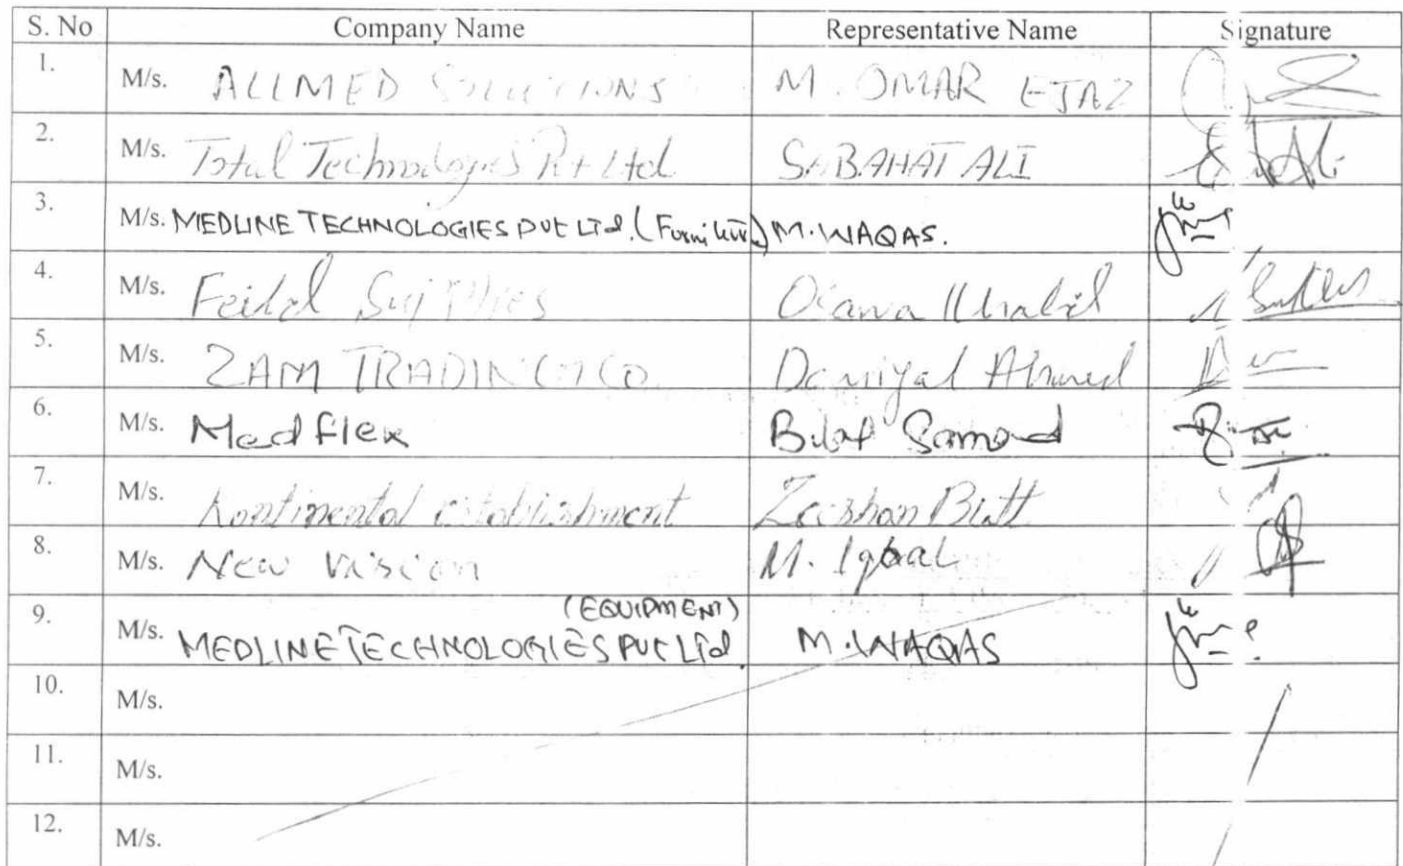 S. No Company Name Representative Name Signature
1. M/s. ALLMED SOLUTIONS M. OMAR EJAZ
2. M/s. Total Technologies Pvt Ltd SABAHAT ALI
3. M/s. MEDLINE TECHNOLOGIES PVt LTd. (Furniture) M. WAQAS.
4. M/s. Supplies Khalid
5. M/s. ZAM TRADING CO. Daniyal Ahmed
6. M/s. Medflex Bilal Samad
7. M/s. Kontinental establishment Zeeshan Butt
8. M/s. New Vision M. Iqbal
(EQUIPMENT)
9. M/s. MEDLINE TECHNOLOGIES PVt LTd M. WAQAS
10. M/s.
11. M/s.
12. M/s.